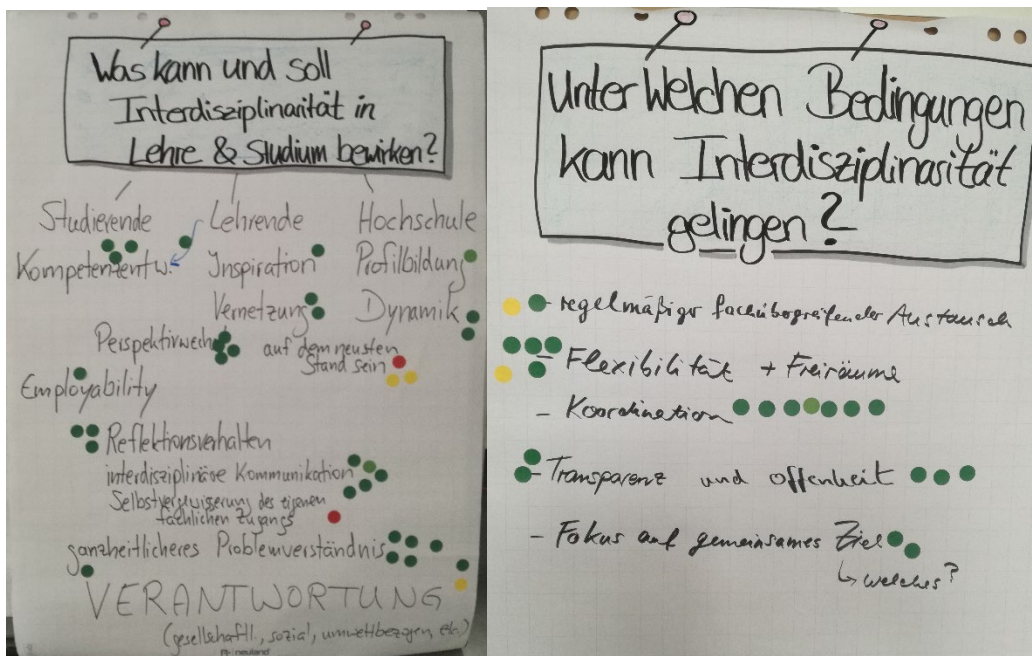 Was kann und soll
Interdisziplinarität in
Lehre & Studium bewirken?
Studierende
Lehrende
Hochschule
Kompetenzentw.
Inspiration
Profilbildung
Vernetzung
Dynamik
Perspektivwechsel
auf dem neusten
Stand sein
Employability
Reflektionsverhalten
interdisziplinäre Kommunikation
Selbstvergewisserung des eigenen
fachlichen Zugangs
ganzheitlicheres Problemverständnis
VERANTWORTUNG
(gesellschaftl., sozial, umweltbezogen, etc.)
neuland
Unter Welchen Bedingungen
kann Interdisziplinarität
gelingen?
- regelmäßiger fachübergreifender Austausch
- Flexibilität + Freiräume
- Koordination
- Transparenz und offenheit
- Fokus auf gemeinsames Ziel
↳ welches?